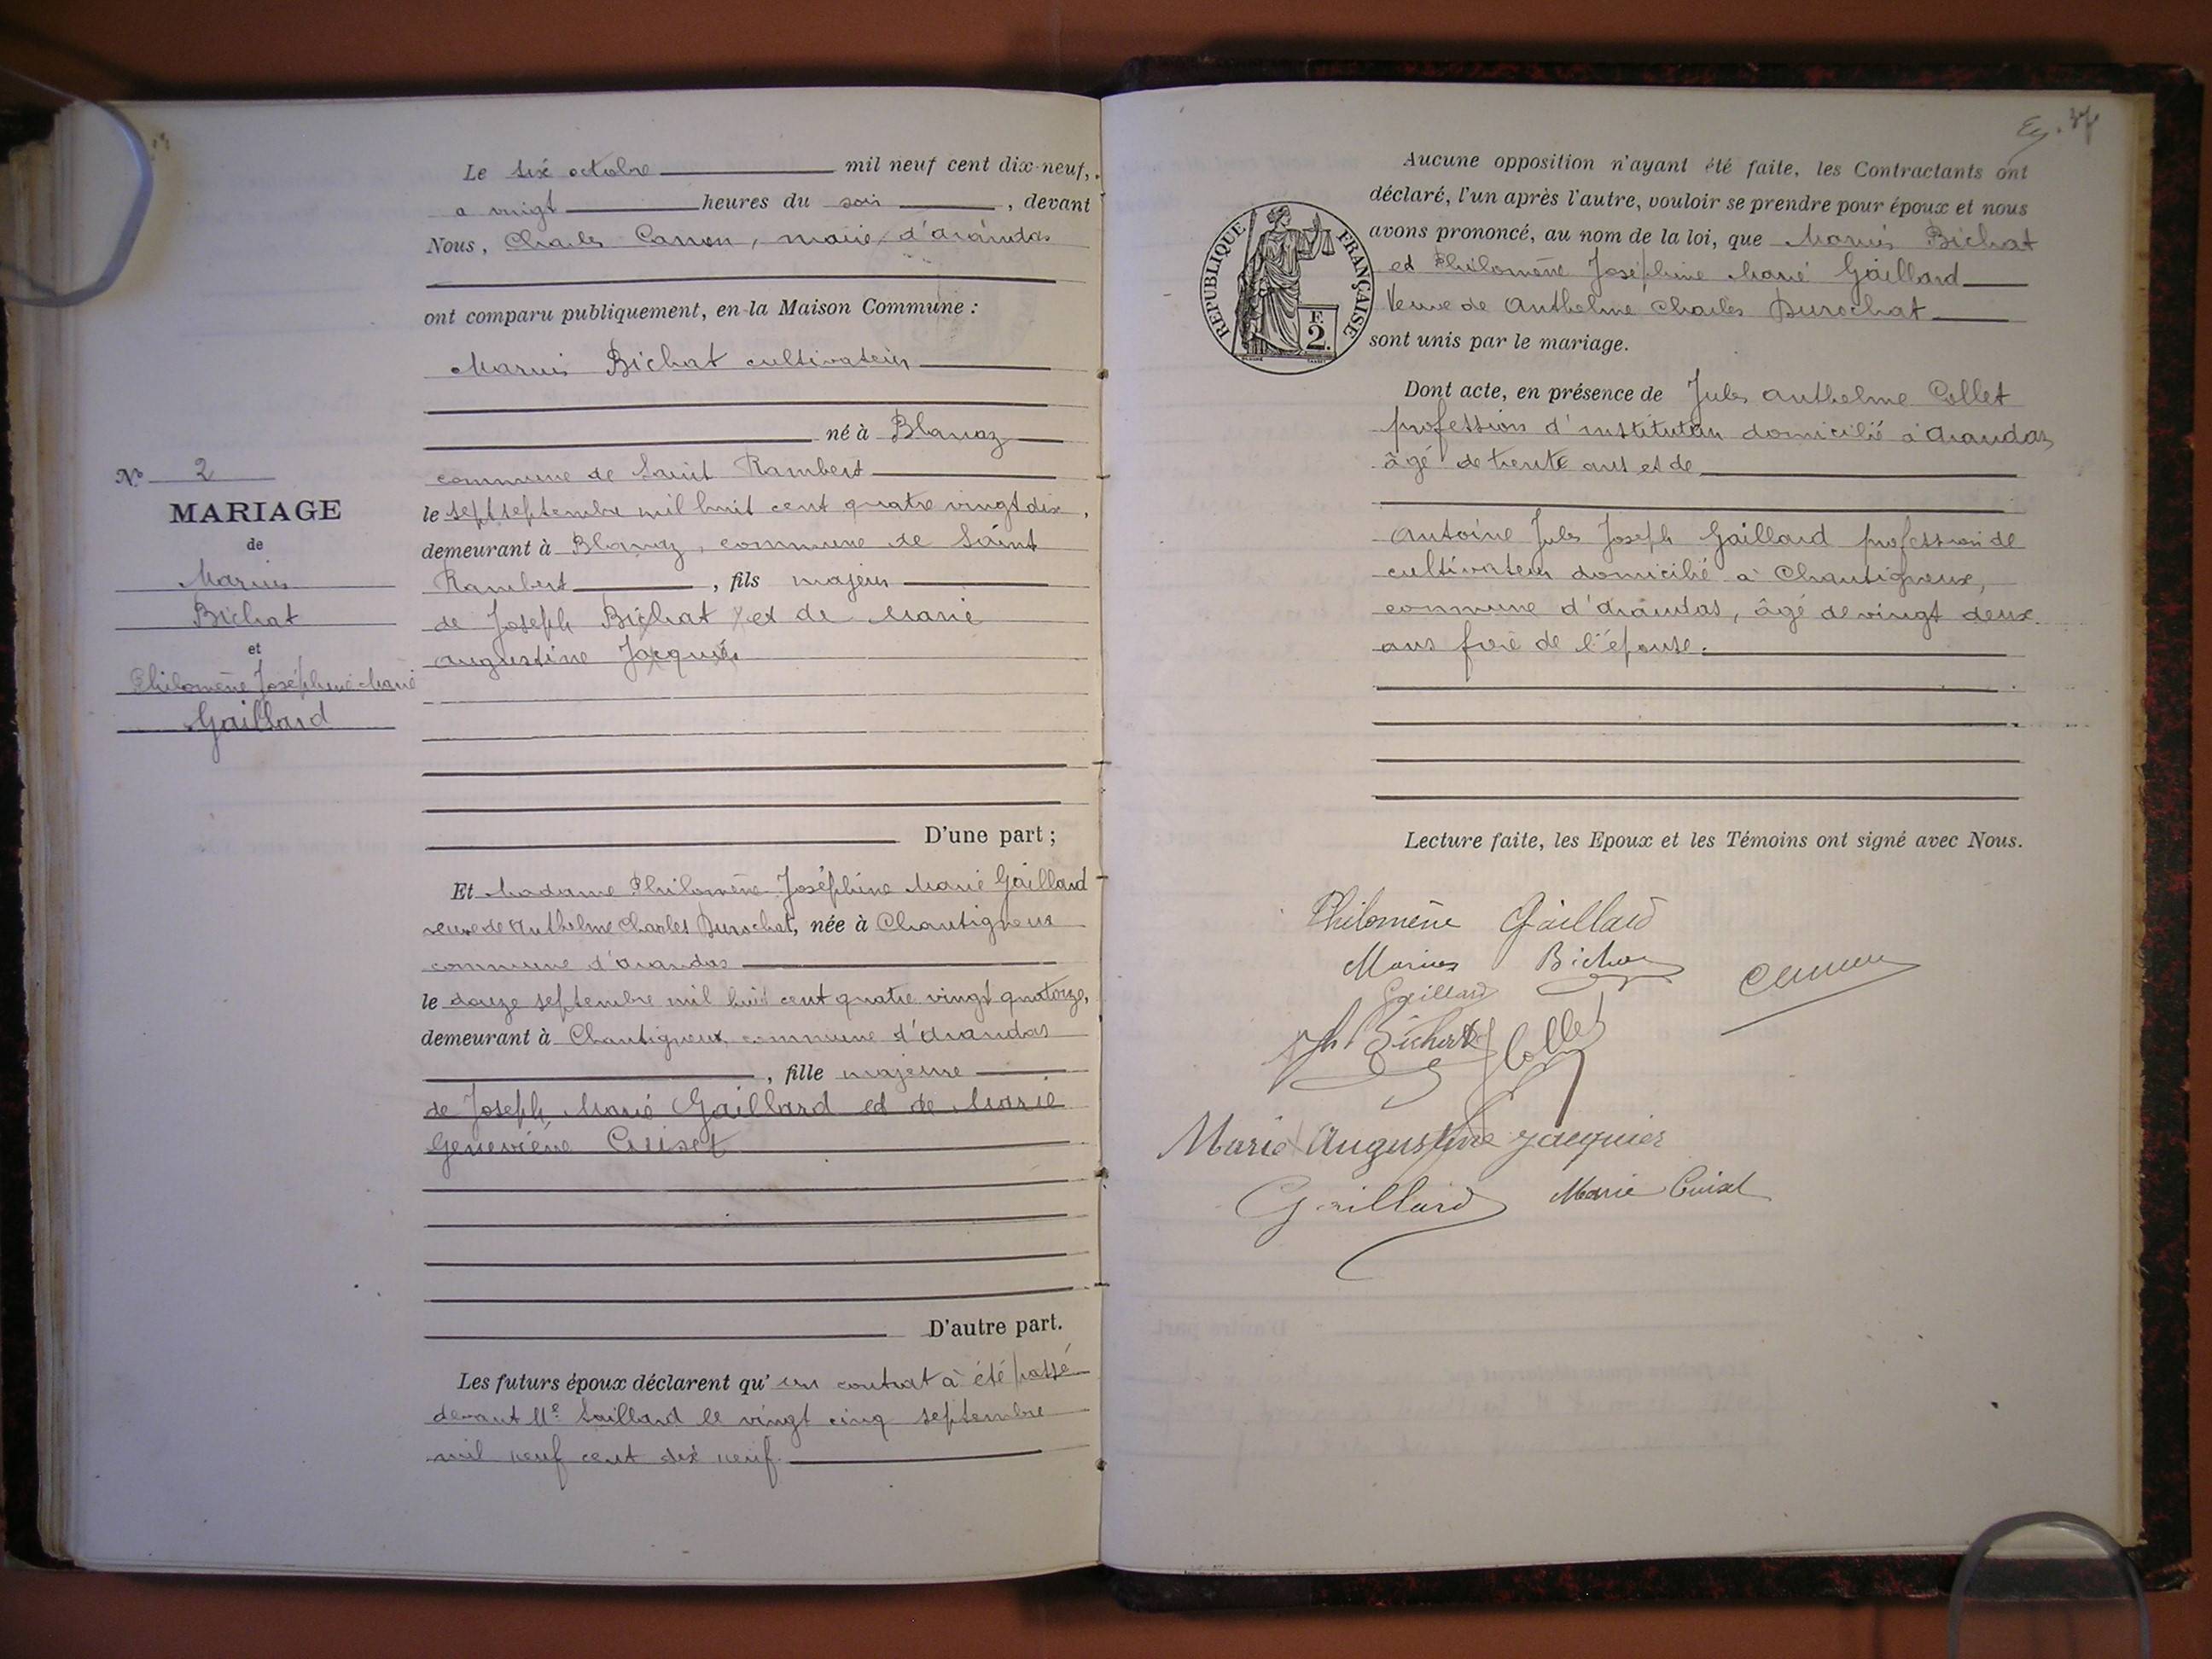 N° 2
MARIAGE
de
Marius
Bichat
et
Philomène Joséphine Marie
Gaillard
Le six octobre mil neuf cent dix-neuf,
a vingt heures du soir , devant
Nous, Charles Carron, maire d'arandas
ont comparu publiquement, en la Maison Commune :
Marius Bichat cultivateur
né à Blanaz
commune de Saint Rambert
le sept septembre mil huit cent quatre vingt dix ,
demeurant à Blanaz, commune de Saint
Rambert , fils majeur
de Joseph Bichat et de Marie
augustine Jacquier
D'une part ;
Et Madame Philomène Joséphine Marie Gaillard
veuve de Anthelme Charles Durochat, née à Chantigneux
commune d'arandas
le douze septembre mil huit cent quatre vingt quatorze,
demeurant à Chantigneux commune d'arandas
, fille majeure
de Joseph Marie Gaillard et de Marie
Geneviève Cuiset
D'autre part.
Les futurs époux déclarent qu' un contrat à été passé
devant Me Saillard le vingt cinq septembre
mil neuf cent dix neuf.
37
Aucune opposition n'ayant été faite, les Contractants ont
déclaré, l'un après l'autre, vouloir se prendre pour époux et nous
avons prononcé, au nom de la loi, que Marius Bichat
et Philomène Joséphine Marie Gaillard
Veuve de Anthelme Charles Durochat
sont unis par le mariage.
RÉPUBLIQUE FRANÇAISE
F.
2.
Dont acte, en présence de Jules Anthelme Collet
profession d'instituteur domicilié à Arandas
âgé de trente ans et de
Antoine Jules Joseph Gaillard profession de
cultivateur domicilié à Chantigneux,
commune d'arandas, âgé de vingt deux
ans frère de l'épouse.
Lecture faite, les Epoux et les Témoins ont signé avec Nous.
Philomène Gaillard
Marius Bichat
Gaillard
Bichat Collet
Marie Augustine Jacquier
Gaillard Marie Cuiset